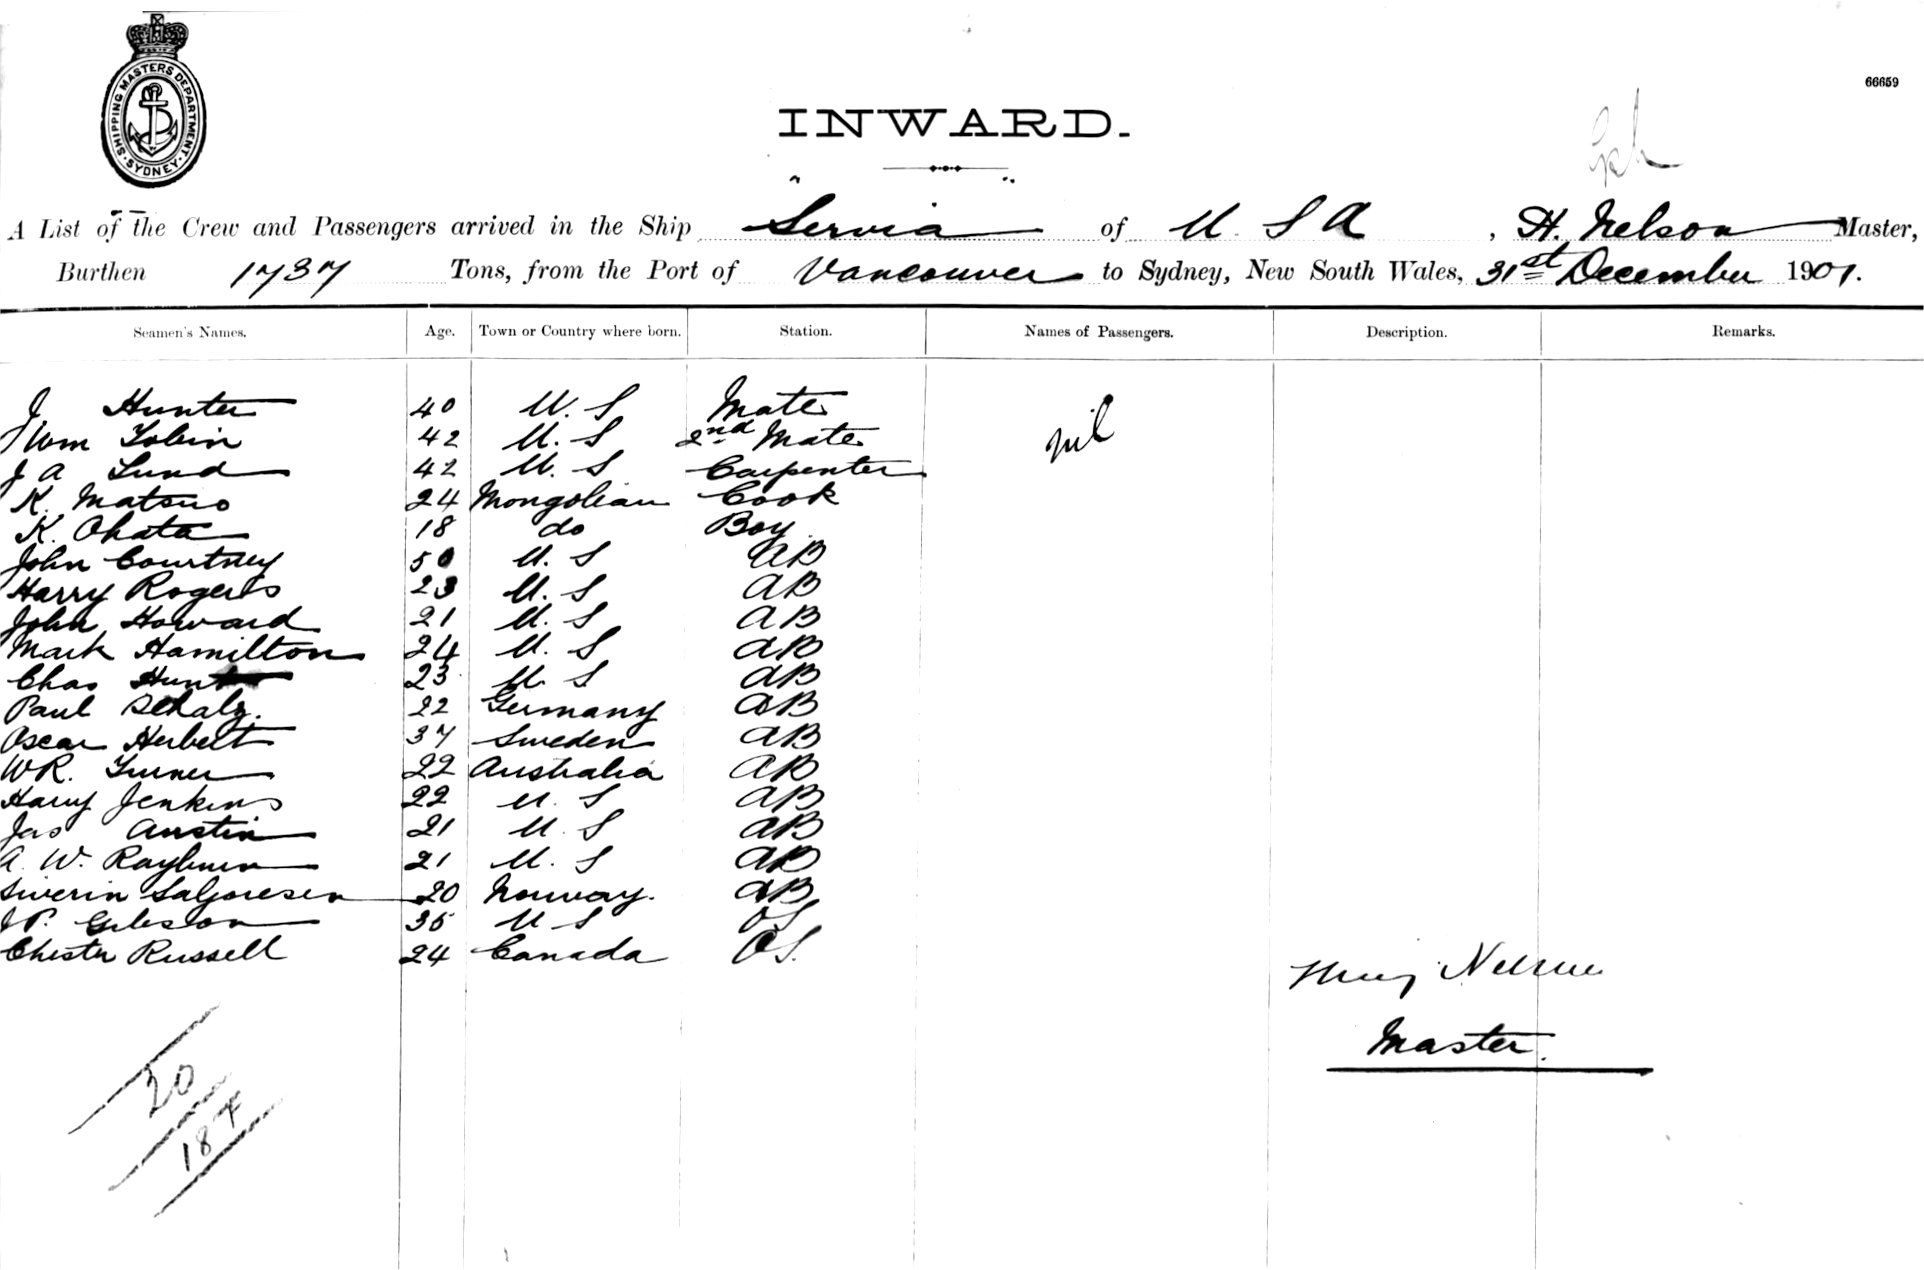 SHIPPING MASTERS DEPARTMENT. SYDNEY.
66659
INWARD.
A List of the Crew and Passengers arrived in the Ship Servia of U. S A, H. Nelson Master,
Burthen 1737 Tons, from the Port of Vancouver to Sydney, New South Wales, 31st December 1901.
Seamen's Names. Age. Town or Country where born. Station. Names of Passengers. Description. Remarks.
J Hunter 40 U. S Mate nil
Wm Tobin 42 U. S 2nd Mate
J A Lund 42 U. S Carpenter
K. Matsuo 24 Mongolian Cook
K. Ohata 18 do Boy
John Courtney 50 U. S AB
Harry Rogers 23 U. S AB
John Howard 21 U. S AB
Mark Hamilton 24 U. S AB
Chas 23 U. S AB
Paul 22 Germany AB
Oscar Herbert 37 Sweden AB
WR. Turner 22 Australia AB
Harry Jenkins 22 U. S AB
Jas Austin 21 U. S AB
A. W. Rayburn 21 U. S AB
Siverin 20 Norway. AB
J P. Gibson 35 U S OS
Chester Russell 24 Canada OS.
Henry Nelson
Master.
20
18